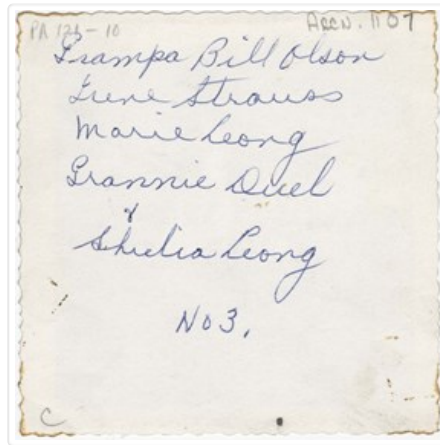 PA 126-10
Accn. 1107
Grampa Bill Olson
Irene Strauss
Marie Leong
Grannie Duel
&
Shelia Leong
No 3.
C